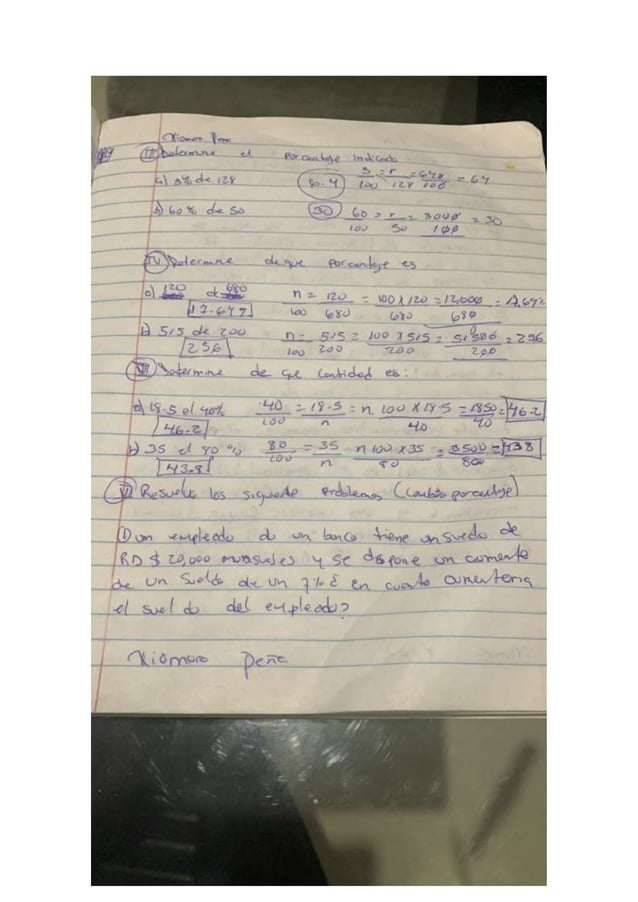 Xiomara Peña
III Determine el Porcentaje Indicado
a) 5% de 128 5/100 = r/128 = 640/100 = 64
b) 60% de 50 (30) 60/100 = r/50 = 3000/100 = 30
IV Determine de que porcentaje es
a) 120 de 680 n/100 = 120/680 = 100x120/680 = 12,000/680
17.647
b) 515 de 200 n/100 = 515/200 = 100x515/200
256
Determine de que Cantidad es:
a) 18.5 el 40% 40/100 = 18.5/n = n 100x18.5/40 = 1850/40 = 46.2
46.2
b) 35 el 80% 80/100 = 35/n n 100x35/80
43.8
VI Resuelva los siguiente problemas (Cambio porcentaje)
① un empleado de un banco tiene un suedo de
RD $ 20,000 mensuales y se dispone un aumento
de un sueldo de un 7%
el sueldo del empleado?
Xiomara Peña